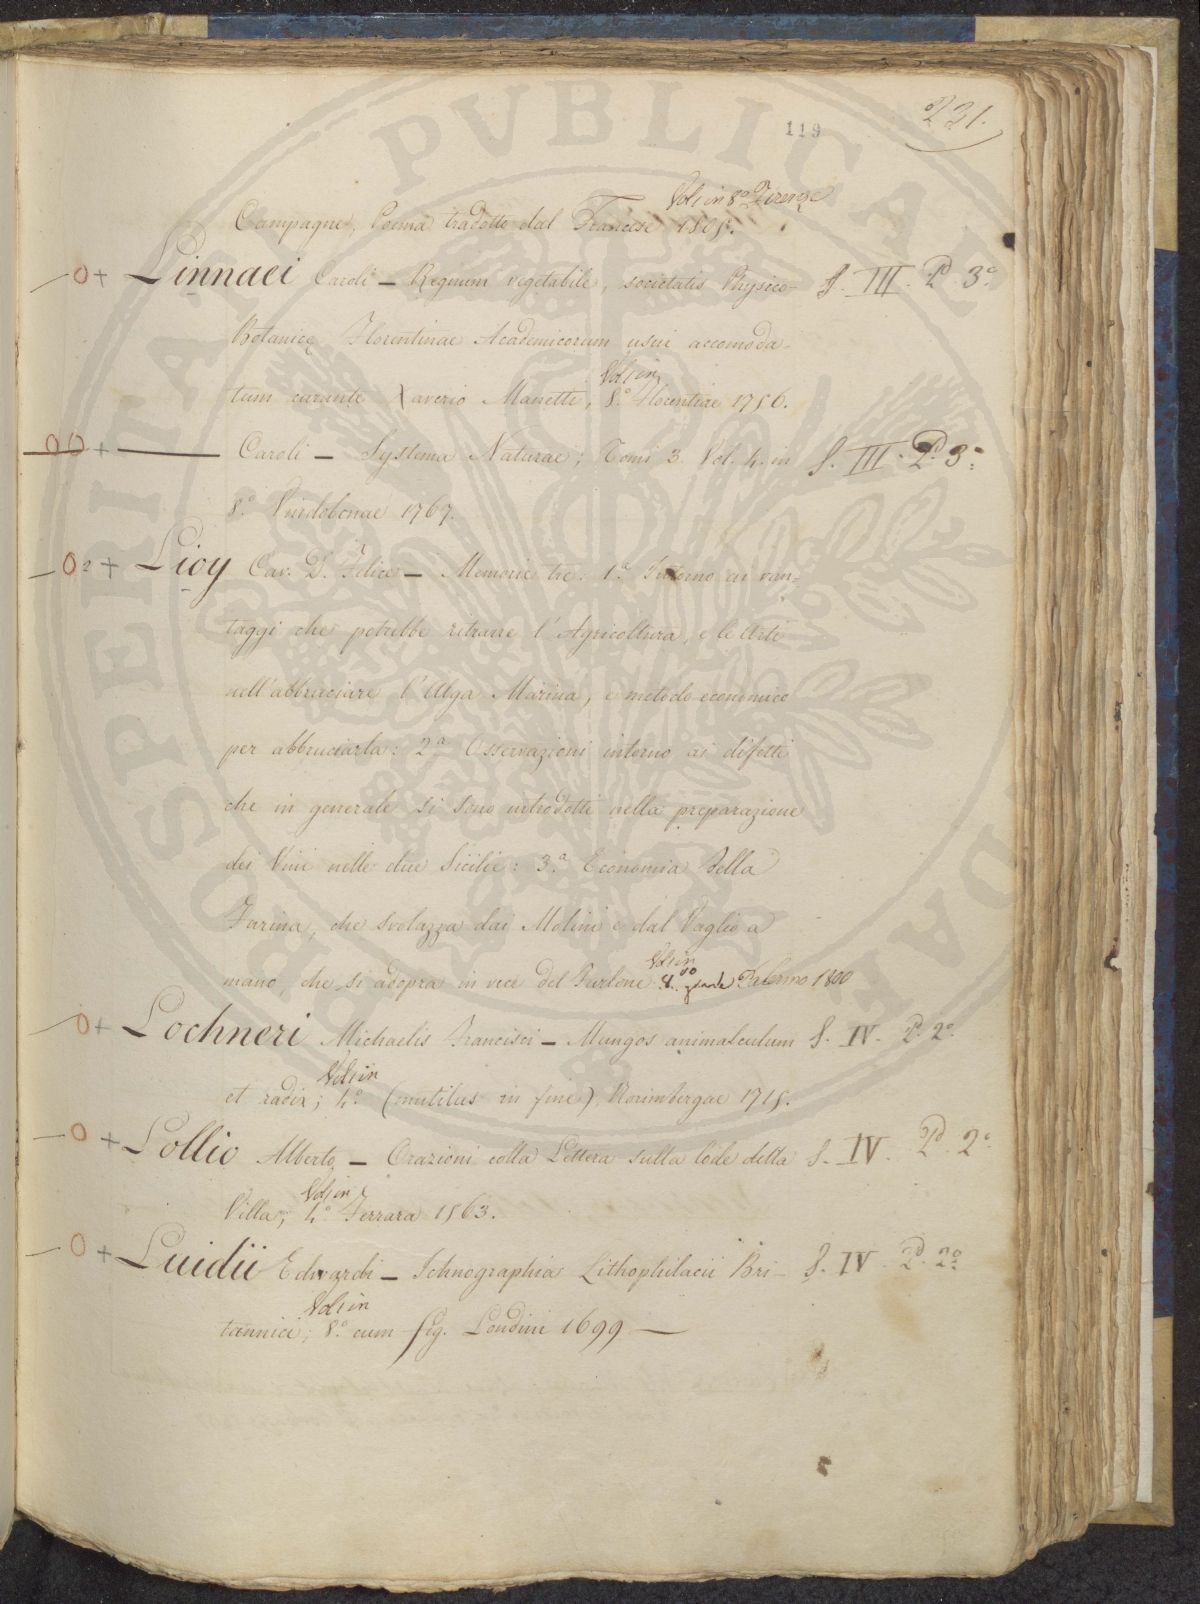 PUBLICAE
PROSPERITATI
AUGENDAE
119
231.
Vol 1 in 8º Firenze
Campagne, Poema tradotto dal Francese 1805.
— 0 + Linnaei Caroli — Regnum vegetabile, societatis Physico- S. III. Pd. 3º
Botanicę Florentinae Academicorum usui accomoda-
Vol 1 in
tum curante Xaverio Manetti, 8.º Florentiae 1756.
00 + — Caroli — Systema Naturae; Tomi 3. Vol. 4. in S. III. Pd. 3º
8.º Vindobonae 1767.
— 02 + Lioy Cav. D. Felice — Memorie tre. 1.ª Intorno ai van-
taggi che potrebbe ritrarre l'Agricoltura, e le Arti
nell'abbruciare l'Alga Marina, e metodo economico
per abbruciarla: 2ª Osservazioni intorno ai difetti
che in generale si sono introdotti nella preparazione
dei Vini nelle due Sicilie: 3.ª Economia della
Farina, che svolazza dai Molini e dal Vaglio a
Vol 1 in
mano, che si adopra in vece del Furlone 8.º grande Palermo 1800
— 0 + Lochneri Michaelis Francisci — Mungos animalculum S. IV. Pd. 2º
Vol 1 in
et radix; 4.º (mutilus in fine) Norimbergae 1715.
— 0 + Lollio Alberto — Orazioni colla Lettera sulla lode della S. IV. Pd. 2º
Vol 1 in
Villa; 4.º Ferrara 1563.
— 0 + Luidii Edwardi — Ichnographia Lithophilacii Bri- S. IV. Pd. 2º
Vol 1 in
tannici; 8.º cum fig. Londini 1699 —